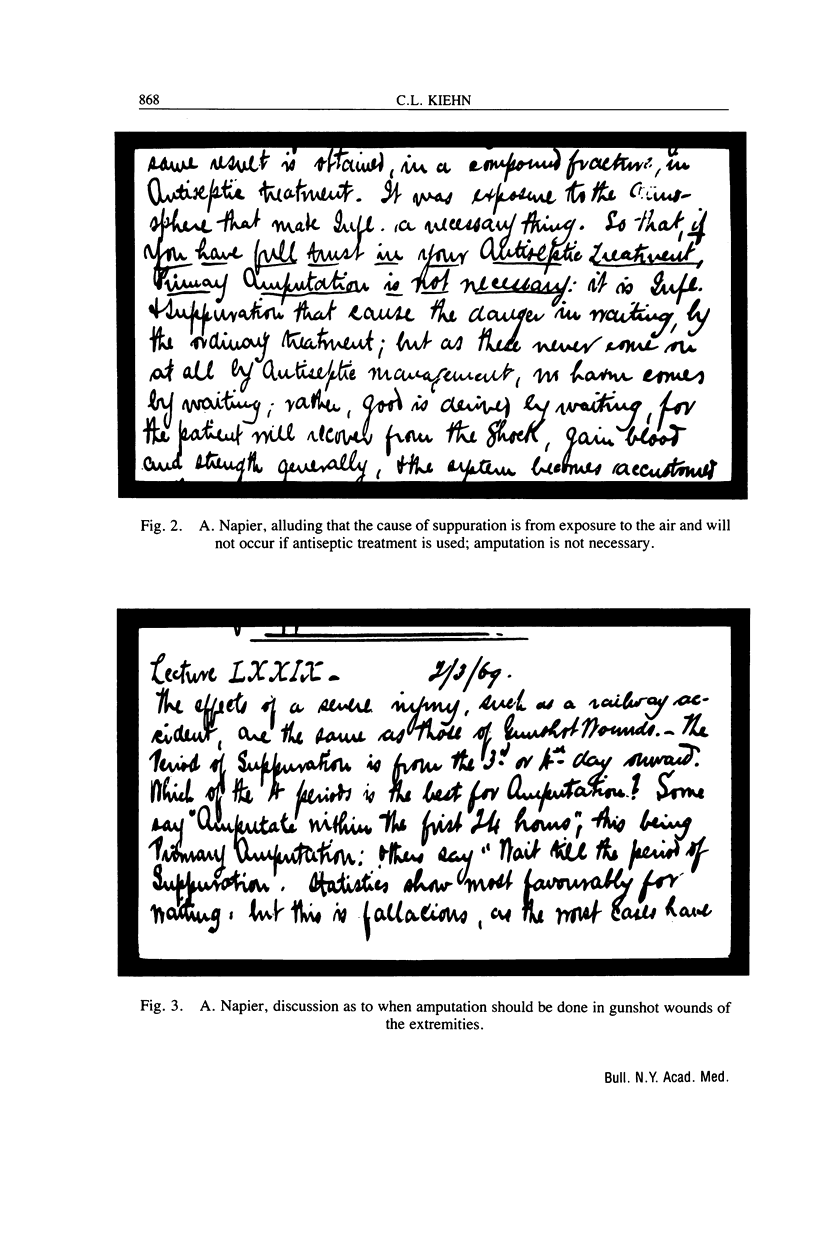 868
C.L. KIEHN
same result is obtained, in a compound fracture, in
Antiseptic treatment. It was exposure to the Atmos-
sphere that made Infl. a necessary thing. So that, if
you have full trust in your Antiseptic Treatment,
Primary Amputation is not necessary: it is Infl.
& Suppuration that cause the danger in waiting, by
the ordinary treatment; but as these never come on
at all by Antiseptic management, no harm comes
by waiting; rather, good is derived by waiting, for
the patient will recover from the Shock, gain blood
and strength generally, & the system becomes accustomed
Fig. 2. A. Napier, alluding that the cause of suppuration is from exposure to the air and will
not occur if antiseptic treatment is used; amputation is not necessary.
Lecture LXXIX. 2/3/69.
The effects of a severe injury, such as a railway ac-
cident, are the same as those of Gunshot Wounds. – The
Period of Suppuration is from the 3d or 4th day onward.
Which of the 4 periods is the best for Amputation? Some
say "Amputate within the first 24 hours"; this being
Primary Amputation; others say "Wait till the period of
Suppuration". Statistics show most favourably for
waiting: but this is fallacious, as the most cases have
Fig. 3. A. Napier, discussion as to when amputation should be done in gunshot wounds of
the extremities.
Bull. N.Y. Acad. Med.